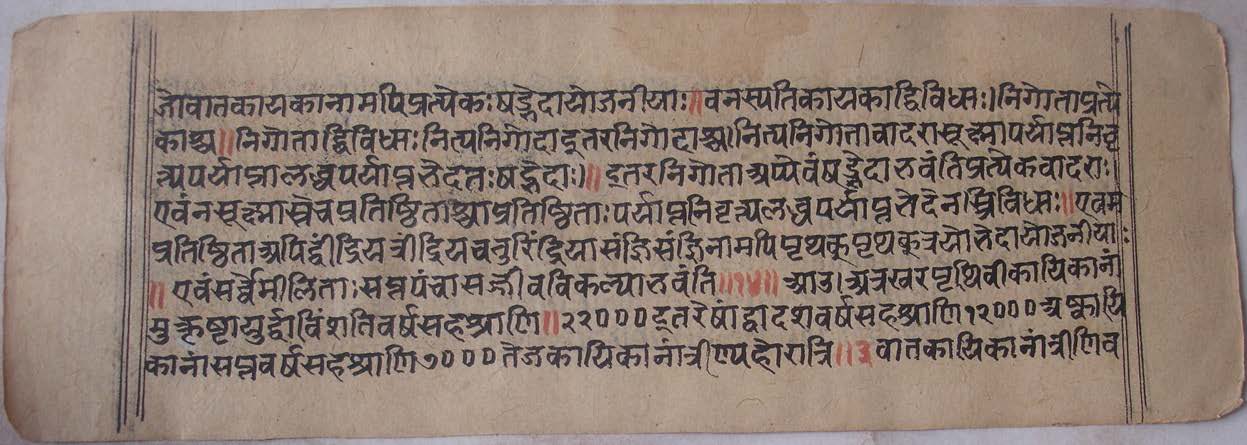 जोवातकायकानामपिप्रत्येकःषड्भेदायोजनीयाः॥वनस्पतिकायकाद्विविधाः।निगोताप्रत्ये
काश्च॥निगोताद्विविधाःनित्यनिगोदाइतरनिगोदाश्च।नित्यनिगोतावादरासूक्ष्मापर्याप्तनिवृ
त्त्यपर्याप्तालब्ध्यपर्याप्तभेदतःषड्भेदाः।॥इतरनिगोताअप्येवंषड्भेदाभवंतिप्रत्येकवादराः।
एवंनसूक्ष्मास्तेचप्रतिष्ठिताअप्रतिष्ठिताःपर्याप्तनिवृत्त्यलब्ध्यपर्याप्तभेदेनत्रिविधाः॥एवम
प्रतिष्ठिताअपिद्वींद्रियत्रींद्रियचतुरिंद्रियासंज्ञिसंज्ञिनामपिपृथक्पृथक्त्रयोभेदायोजनीयाः
॥एवंसर्व्वेमीलिताःसप्तपंचासज्जीवविकल्पाभवंति॥१४॥आउ।अत्रखरपृथिवीकायिकानां
मुत्कृष्टायुर्द्वाविंशतिवर्षसहश्राणि॥२२०००इतरेषांद्वादशवर्षसहश्राणि१२०००अप्कायि
कानांसप्तवर्षसहश्राणि७०००तेजकायिकानांत्रीण्यहोरात्रि॥३वातकायिकानांत्रीणिव